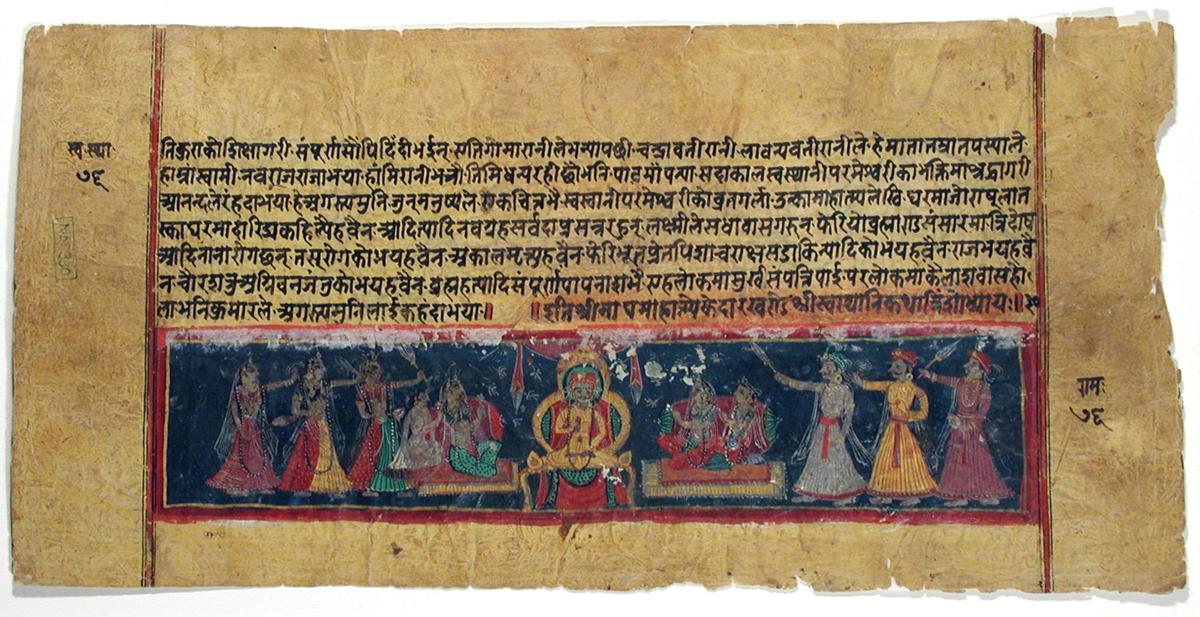 स्व स्था
७६
शिक्षागरी· संपूर्णसौंपिदिंदीभईन्· सतिगोमारानीलेभन्यापछी· चन्द्रावतीरानी· लावण्यवतीरानीले· हेमाता
हाम्रोस्वामी· नवराजराजाभया· हामिरानीभञौ· तिमिधन्यरहीछौभनि· पाउमापन्या· सदाकालस्वस्थानीपरमेश्वरीकाभक्तिमाश्रद्धागरी
आनन्दलेरंहदाभया· हेअगस्त्यमुनि· जुनमनुष्यले· एकचित्तभैस्वस्थानीपरमेश्वरीकोव्रतगर्ला· उन्कामाहात्म्यलेखि· घरमाजोराषुलात
स्काघरमादारिद्र्यकहिल्यैहवैन· आदित्यादिनवग्रहसर्वदाप्रसन्नरहुन्· लक्ष्मीलेसधावासगरुन्· फेरियोब्रह्माण्डसंसारमात्रिदोष
आदिनानारोगछन्· तसरोगकोभयहवैन· अकालमृत्युहवैन· फेरिभूतप्रेतपिशाचराक्षसडाकिन्यादिकोभयहवैन· राजभयहवै
न· चोरशत्रुअग्निवनजंतुकोभयहवैन· ब्रह्महत्यादिसंपूर्णपापनाशभै· एहलोकमासुखसंपत्तिपाई· परलोकमाकैलाशवासहो
लाभनिकुमारले· अगस्त्यमुनिलाईकहंदाभया॥ ॥इतिश्रीमाघमाहात्म्येकेदारखण्डेश्रीस्वस्थानिकथात्रिंशोध्यायः॥३०
रामः
७६